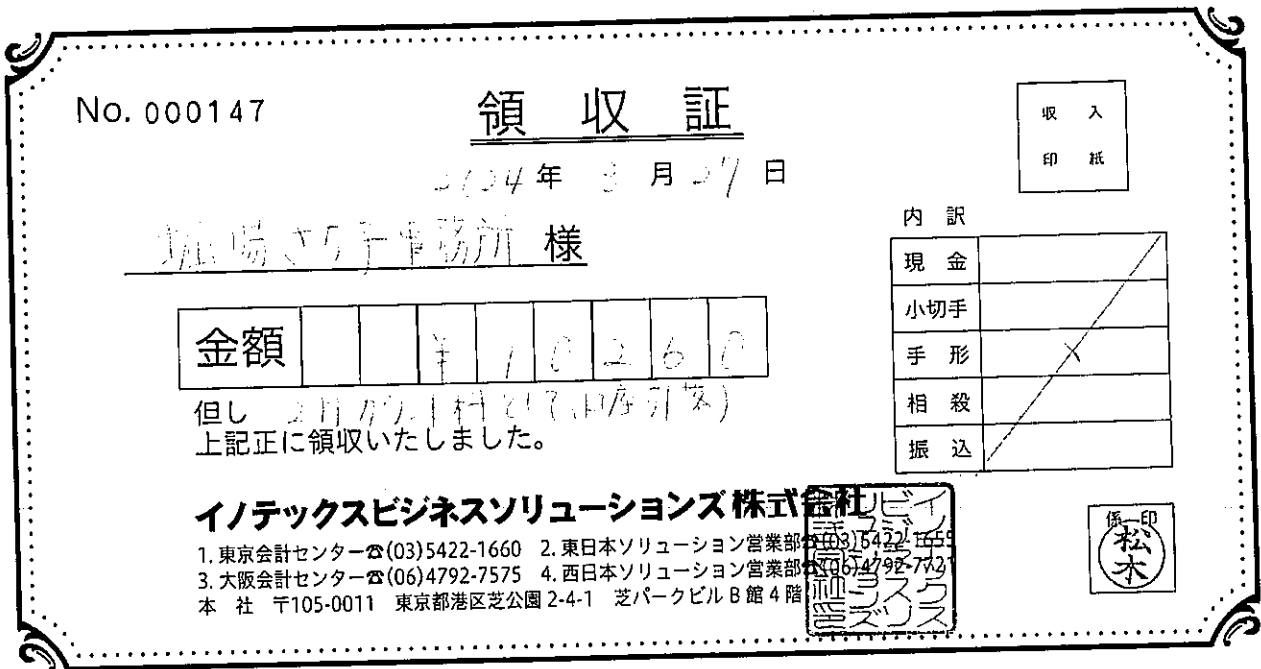 No. 000147
領収証
収入
印紙
2024年 3月27日
堀場さち子事務所 様
内訳
現金
小切手
手形
相殺
振込
金額 ¥10260
但し 2月分 料として(口座引落)
上記正に領収いたしました。
イノテックスビジネスソリューションズ株式会社
1. 東京会計センター☎(03)5422-1660 2. 東日本ソリューション営業部☎(03)5422-1655
3. 大阪会計センター☎(06)4792-7575 4. 西日本ソリューション営業部☎(06)4792-7721
本社 〒105-0011 東京都港区芝公園 2-4-1 芝パークビル B 館 4 階
係印
松木